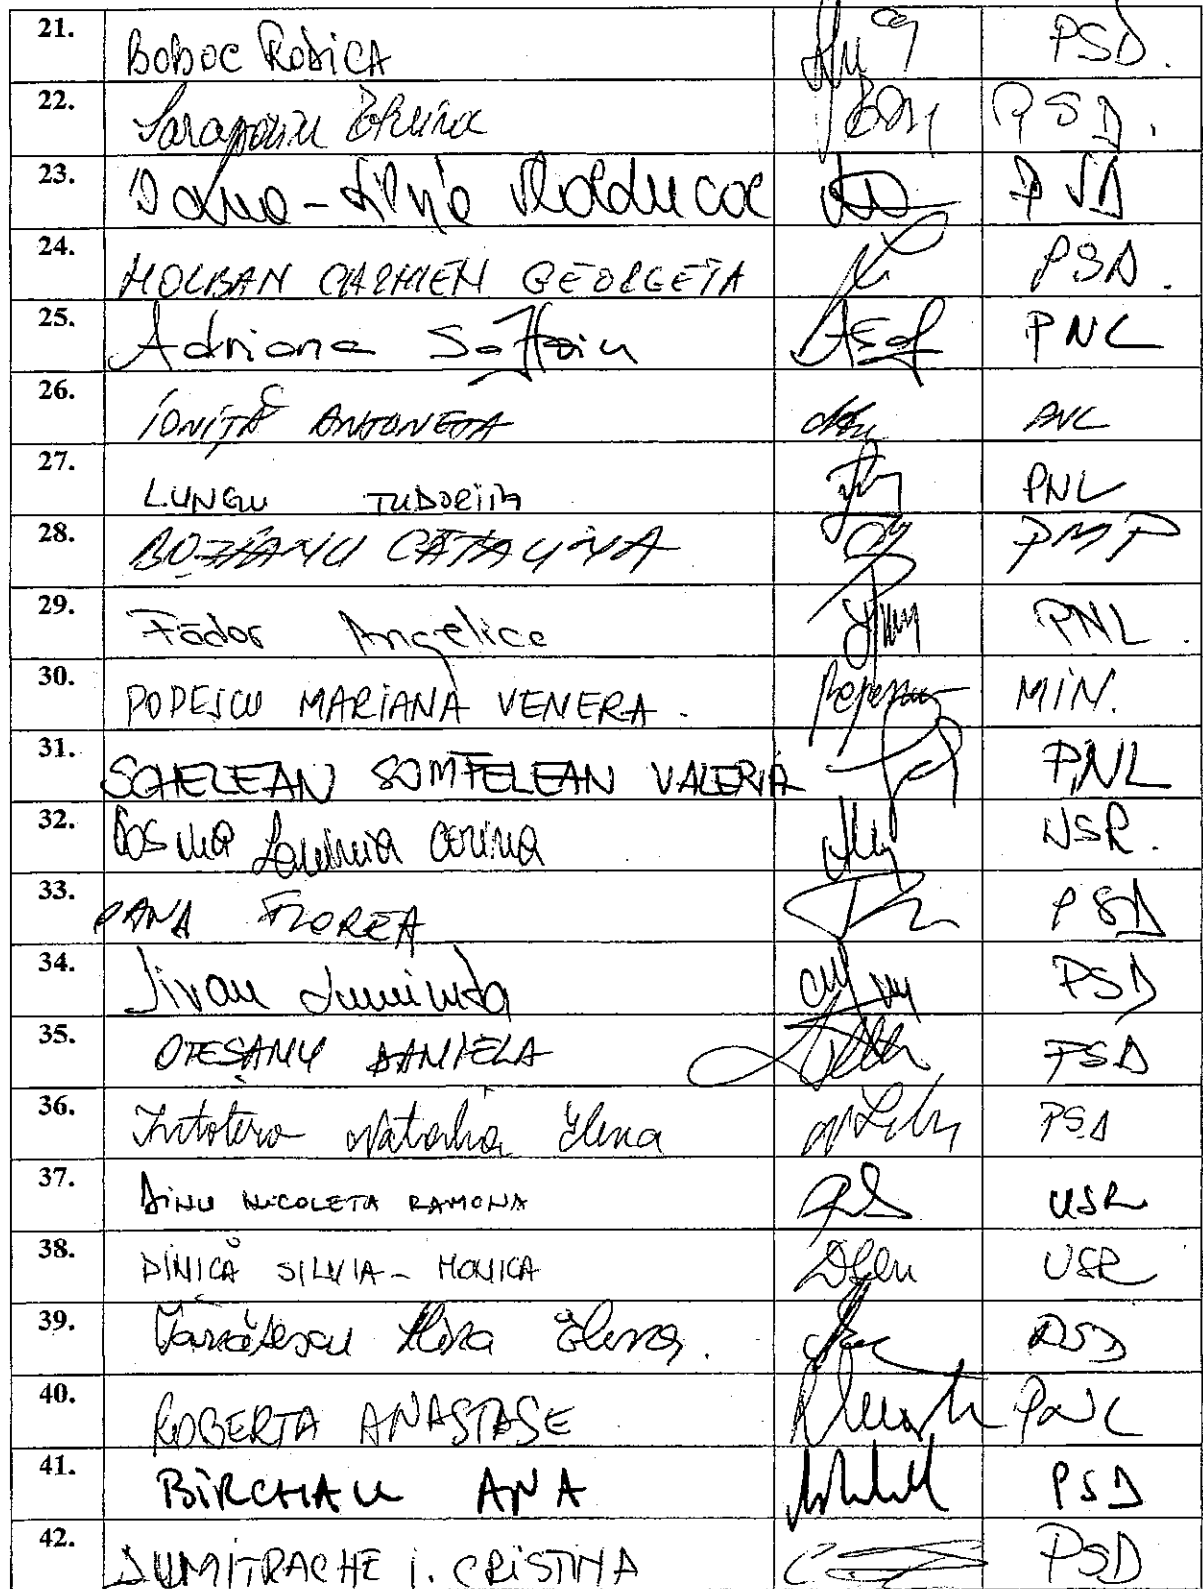 21. BOBOC RODICA PSD.
22. PSD.
23. PSD
24. MOLBAN CARMEN GEORGETA PSD.
25. Adriana Săftoiu PNL
26. IONIȚĂ ANTONETA PNL
27. LUNGU TUDORIȚA PNL
28. BOZIANU CĂTĂLINA PMP
29. Fădor Angelica PNL.
30. POPESCU MARIANA VENERA. MIN.
31. SCHELEAN SOMFELEAN VALERIA PNL
32. Cosma Lavinia Corina USR.
33. PANĂ FLOREA PSD
34. Jivan Luminița PSD
35. OTEȘANU DANIELA PSD
36. Intotero Natalia Elena PSD
37. DINU NICOLETA RAMONA USR
38. DINICĂ SILVIA-MONICA USR
39. Elena. PSD
40. ROBERTA ANASTASE PNL
41. BIRCHALL ANA PSD
42. DUMITRACHE I. CRISTINA PSD